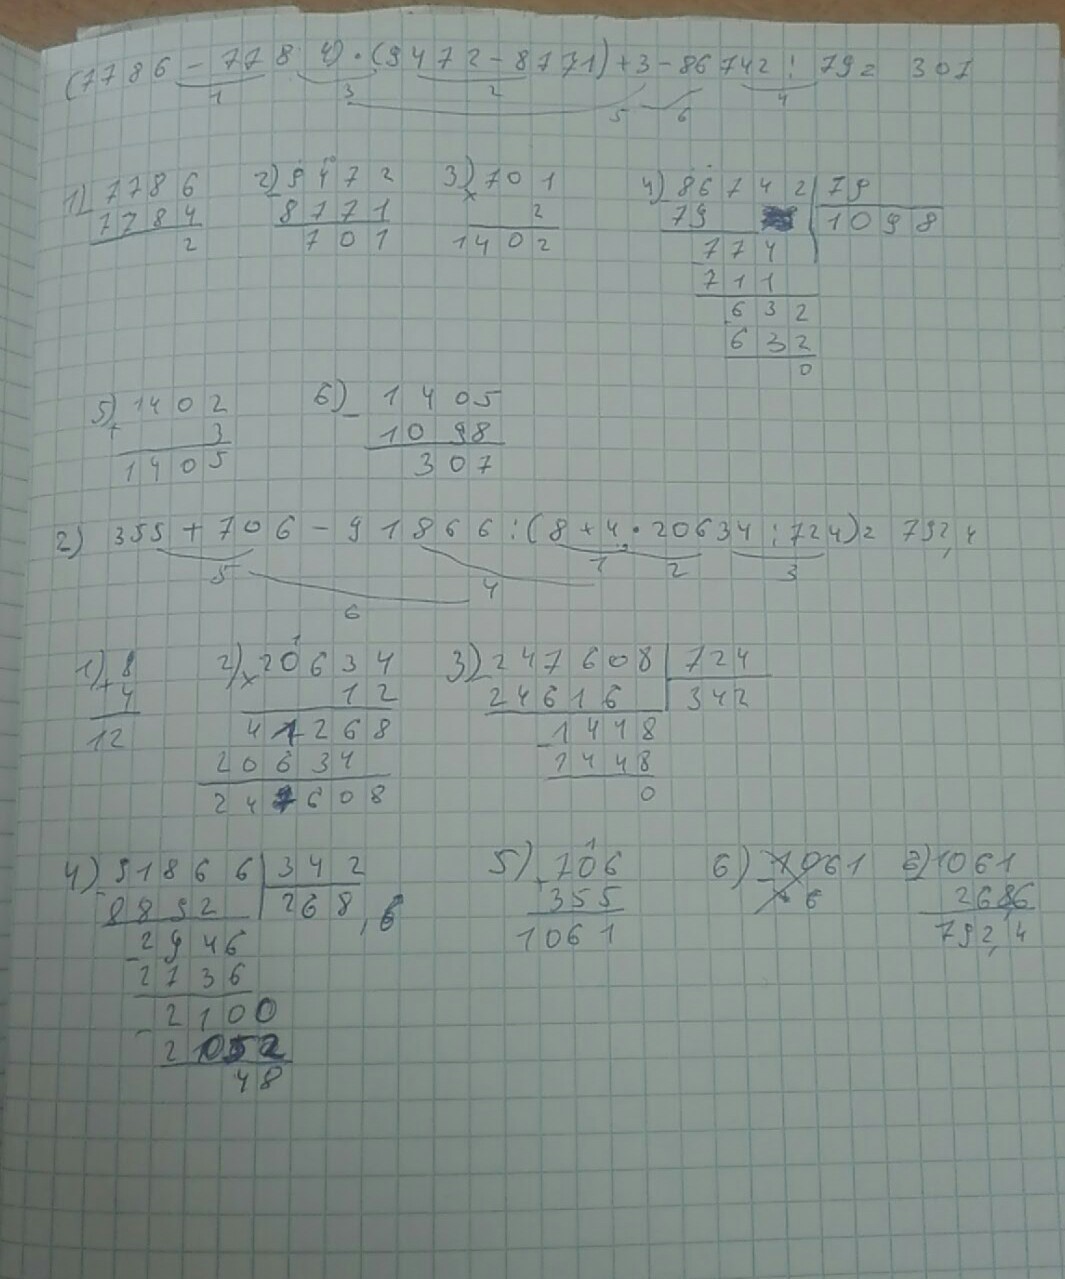 (7786 - 7784) · (9472 - 8771) + 3 - 86742 : 79 = 307
1 3 2 5 6 4
1) 7786 2) 9472 3) 701 4) 86742 | 79
- 7784 - 8771 × 2 - 79 | 1098
2 701 1402 774
- 711
632
- 632
0
5) 1402 6) - 1405
+ 3 1098
1405 307
2) 355 + 706 - 91866 : (8 + 4 · 20634 : 724) = 792,4
5 6 4 1 2 3
1) 8 2) × 20634 3) - 247608 | 724
+ 4 12 24616 | 342
12 41268 - 1448
20634 1448
247608 0
4) - 91866 | 342 5) 706 6) 1061 6) 1061
8892 | 268,6 + 355 6 268,6
- 2946 1061 792,4
2736
- 2100
2052
48